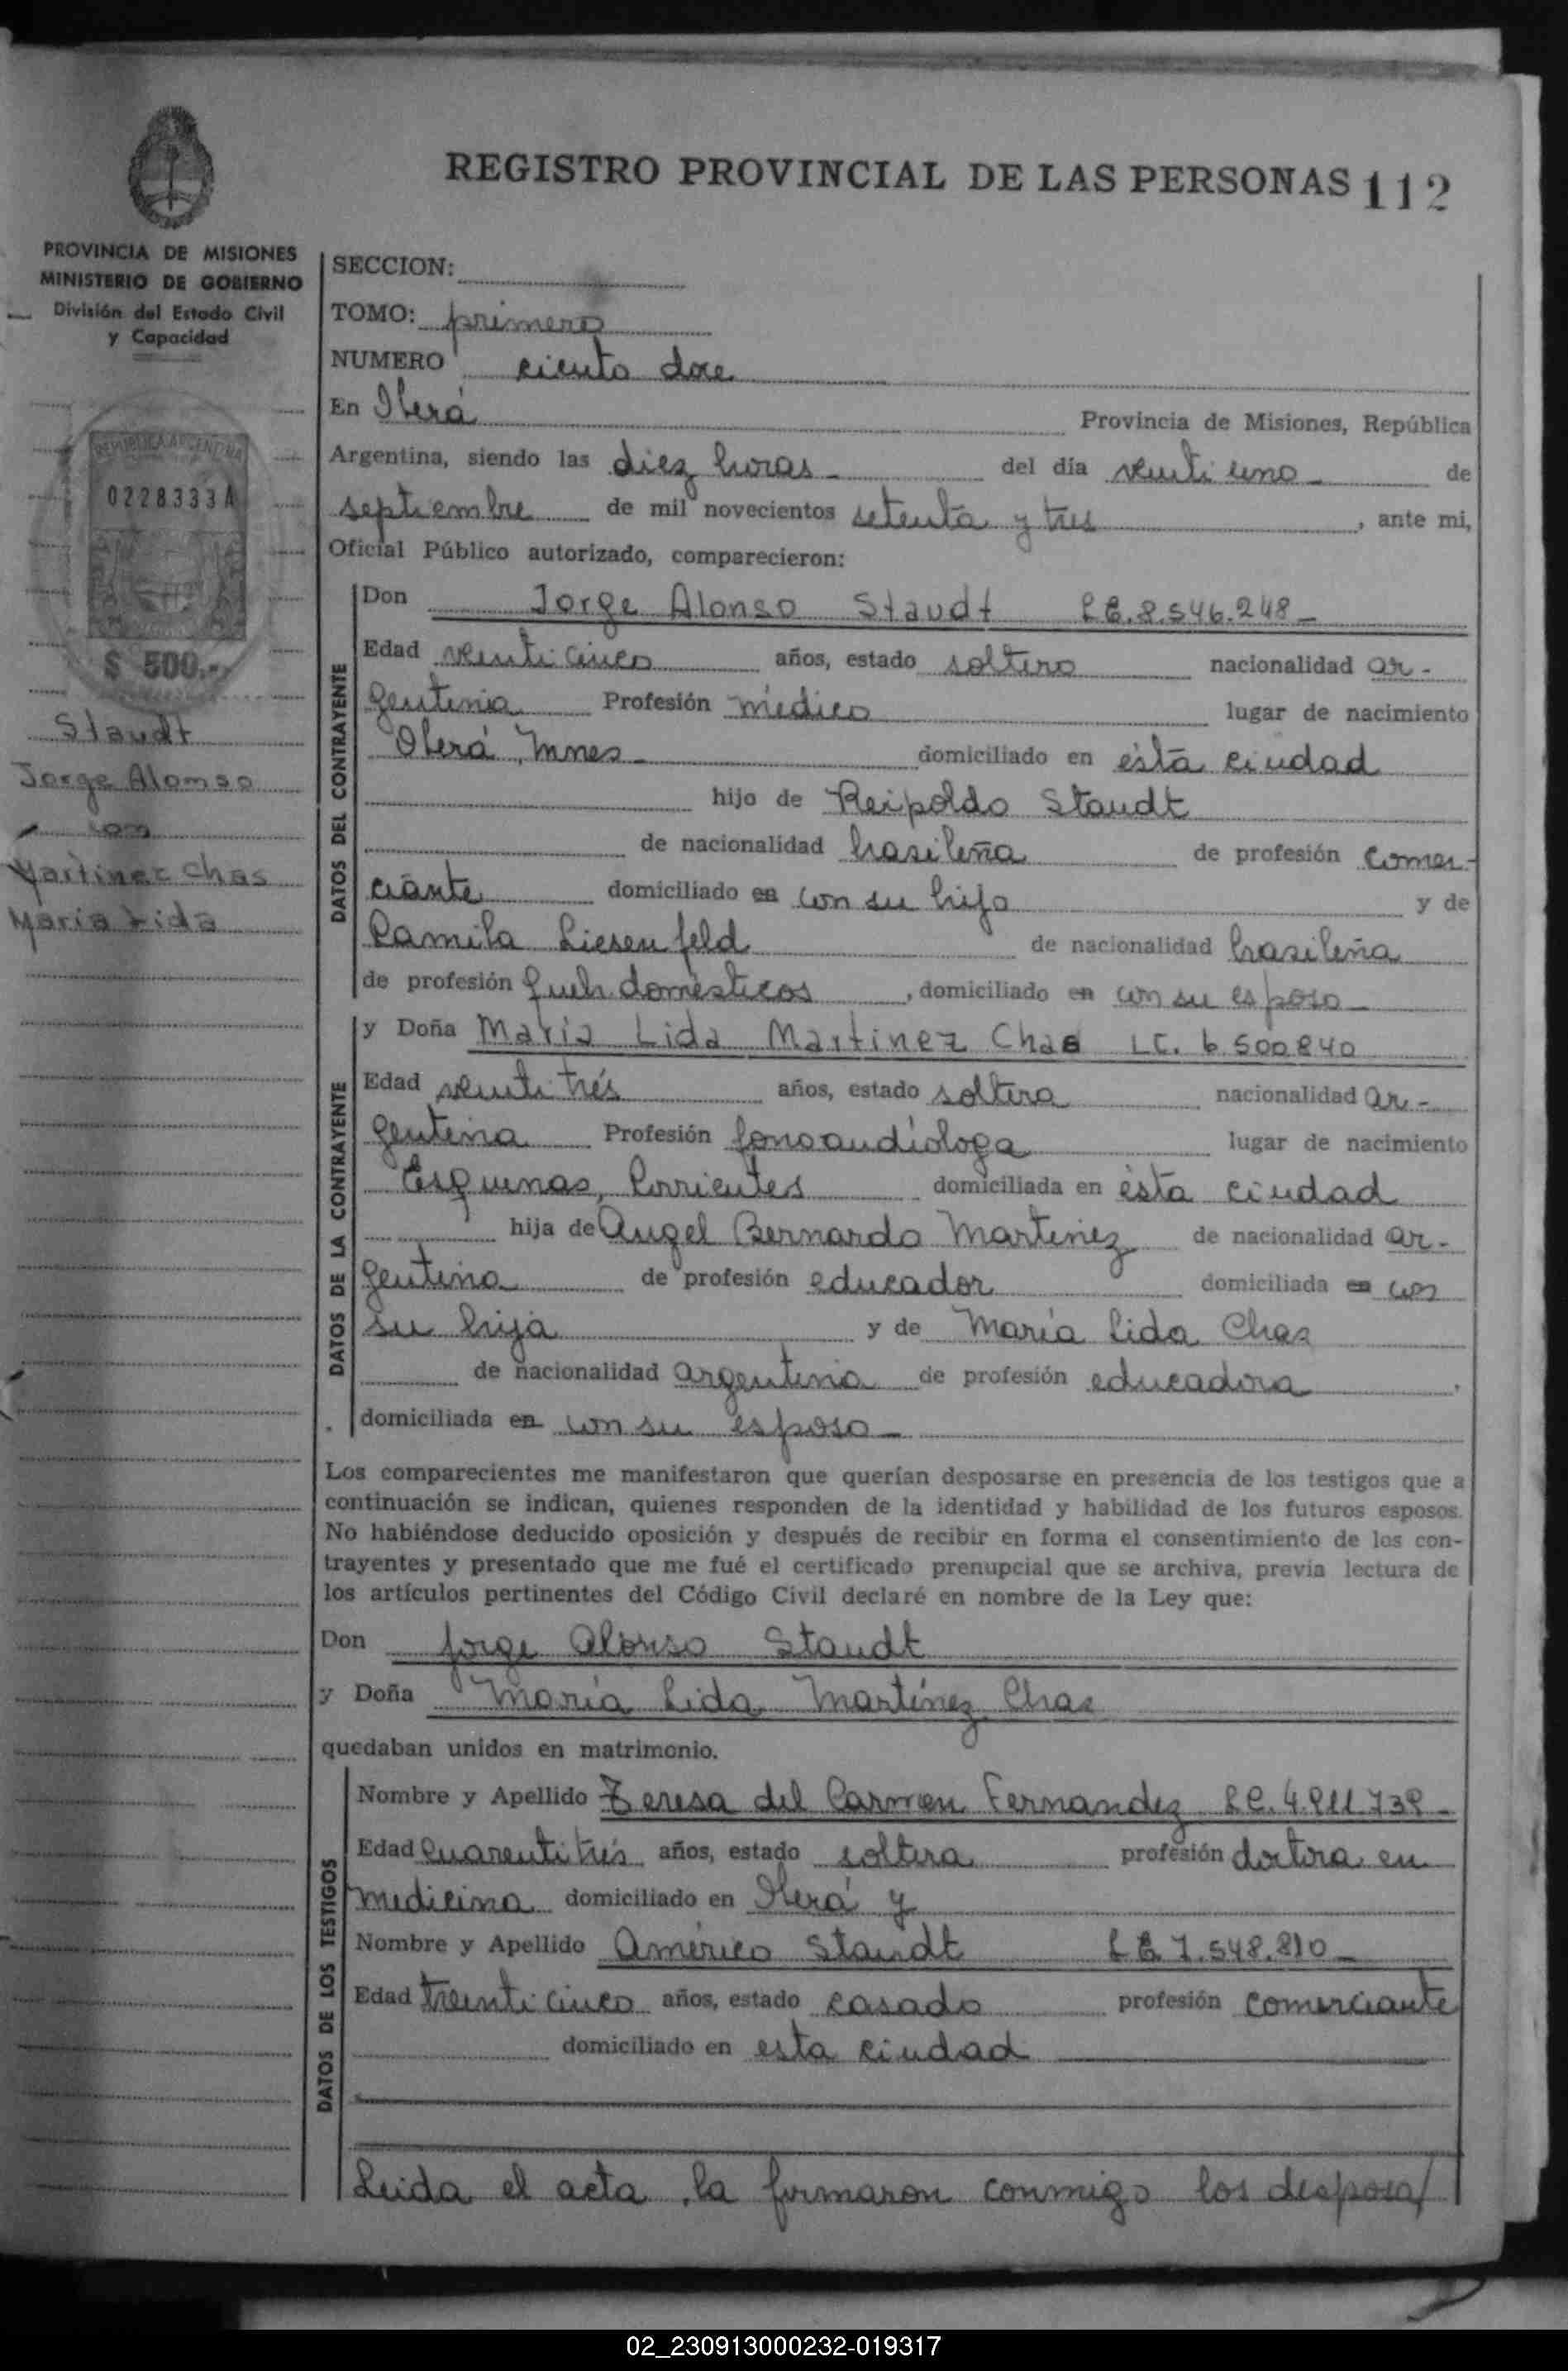 REGISTRO PROVINCIAL DE LAS PERSONAS 112
PROVINCIA DE MISIONES
MINISTERIO DE GOBIERNO
División del Estado Civil
y Capacidad
REPUBLICA ARGENTINA
0228333A
$ 500.-
Staudt
Jorge Alonso
con
Martinez Chas
Maria Lida
SECCION:
TOMO: primero
NUMERO ciento doce
En Oberá Provincia de Misiones, República
Argentina, siendo las diez horas del día veinti uno de
septiembre de mil novecientos setenta y tres, ante mi,
Oficial Público autorizado, comparecieron:
DATOS DEL CONTRAYENTE
Don Jorge Alonso Staudt L.E. 8.546.248
Edad veinticinco años, estado soltero nacionalidad ar-
gentina Profesión médico lugar de nacimiento
Oberá, Mnes domiciliado en ésta ciudad
hijo de Reipoldo Staudt
de nacionalidad brasileña de profesión comer-
ciante domiciliado en con su hijo y de
Camila Liesenfeld de nacionalidad brasileña
de profesión Queh. domésticos, domiciliado en con su esposo
DATOS DE LA CONTRAYENTE
y Doña María Lida Martinez Chas LC. 6.500840
Edad veinti trés años, estado soltera nacionalidad ar-
gentina Profesión fonoaudióloga lugar de nacimiento
Esquinas, Corrientes domiciliada en ésta ciudad
hija de Angel Bernardo Martinez de nacionalidad ar-
gentina de profesión educador domiciliada en con
su hija y de María Lida Chas
de nacionalidad argentina de profesión educadora,
domiciliada en con su esposo
Los comparecientes me manifestaron que querían desposarse en presencia de los testigos que a
continuación se indican, quienes responden de la identidad y habilidad de los futuros esposos.
No habiéndose deducido oposición y después de recibir en forma el consentimiento de los con-
trayentes y presentado que me fué el certificado prenupcial que se archiva, previa lectura de
los artículos pertinentes del Código Civil declaré en nombre de la Ley que:
Don Jorge Alonso Staudt
y Doña María Lida Martínez Chas
quedaban unidos en matrimonio.
DATOS DE LOS TESTIGOS
Nombre y Apellido Teresa del Carmen Fernandez LC.
Edad Cuarentitrés años, estado soltera profesión doctora en
medicina domiciliado en Oberá y
Nombre y Apellido Américo Staudt LE 7.548.810
Edad treinticinco años, estado casado profesión comerciante
domiciliado en esta ciudad
Leida el acta, la firmaron conmigo los desposa/
02_230913000232-019317